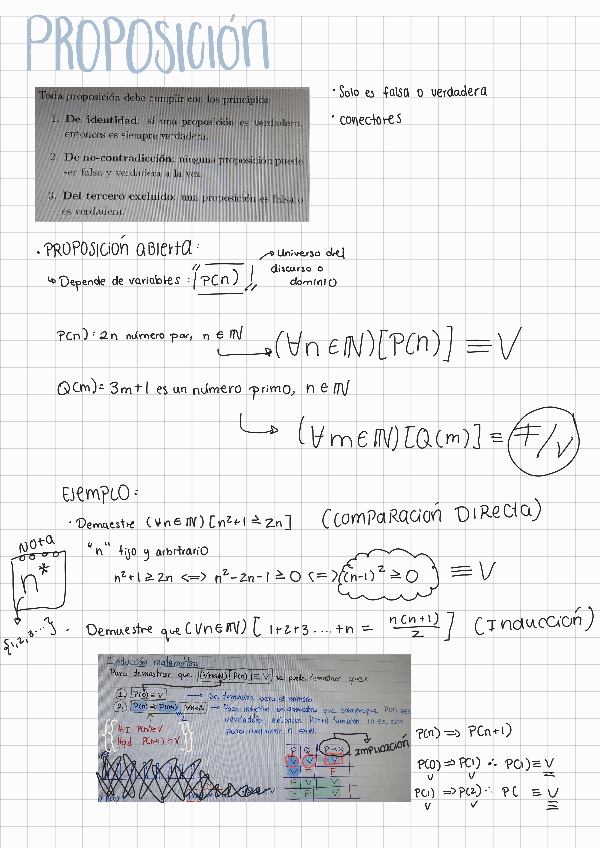 PROPOSICIÓN
Toda proposición debe cumplir con los principios
1. De identidad: si una proposición es verdadera, entonces es siempre verdadera.
2. De no-contradicción: ninguna proposición puede ser falsa y verdadera a la vez.
3. Del tercero excluido: una proposición es falsa o es verdadera.
· Solo es falsa o verdadera
· conectores
· PROPOSICIÓN ABIERTA:
↳ Depende de variables: "P(n)"
→ Universo del discurso o dominio
P(n): 2n número par, n ∈ ℕ
(∀n∈ℕ)[P(n)] ≡ V
Q(m)= 3m+1 es un número primo, n ∈ ℕ
(∀m∈ℕ)[Q(m)] ≡ F/V
EJEMPLO:
· Demuestre (∀n∈ℕ)[n²+1 ≥ 2n] (COMPARACIÓN DIRECTA)
"n" fijo y arbitrario
n²+1 ≥ 2n <=> n²-2n-1 ≥ 0 <=> (n-1)² ≥ 0 ≡ V
NOTA
n*
{1,2,3...}
· Demuestre que (∀n∈ℕ)[1+2+3....+n = n(n+1)/2] (INDUCCIÓN)
Inducción matemática
Para demostrar que (∀n∈ℕ)[P(n)] ≡ V se puede demostrar que:
1. P(0) ≡ V → Se demuestra para el número
2. P(n) ⇒ P(n+1)
H.I P(n) ≡ V
P(n+1) ≡ V
IMPLICACIÓN
P(n) => P(n+1)
P(0) => P(1) ∴ P(1) ≡ V
V V
P(1) => P(2) ∴ P( ≡ V
V V